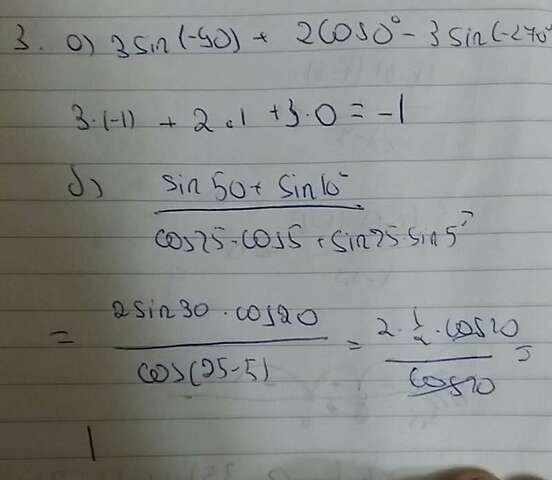 3. a) 3sin(-90) + 2cos0° - 3sin(-270°
3·(-1) + 2·1 + 3·0 = -1
б) sin50 + sin10°
cos25·cos5 + sin25·sin5°
= 2sin30·cos20 / cos(25-5) = 2·1/2·cos20 / cos20 =
1